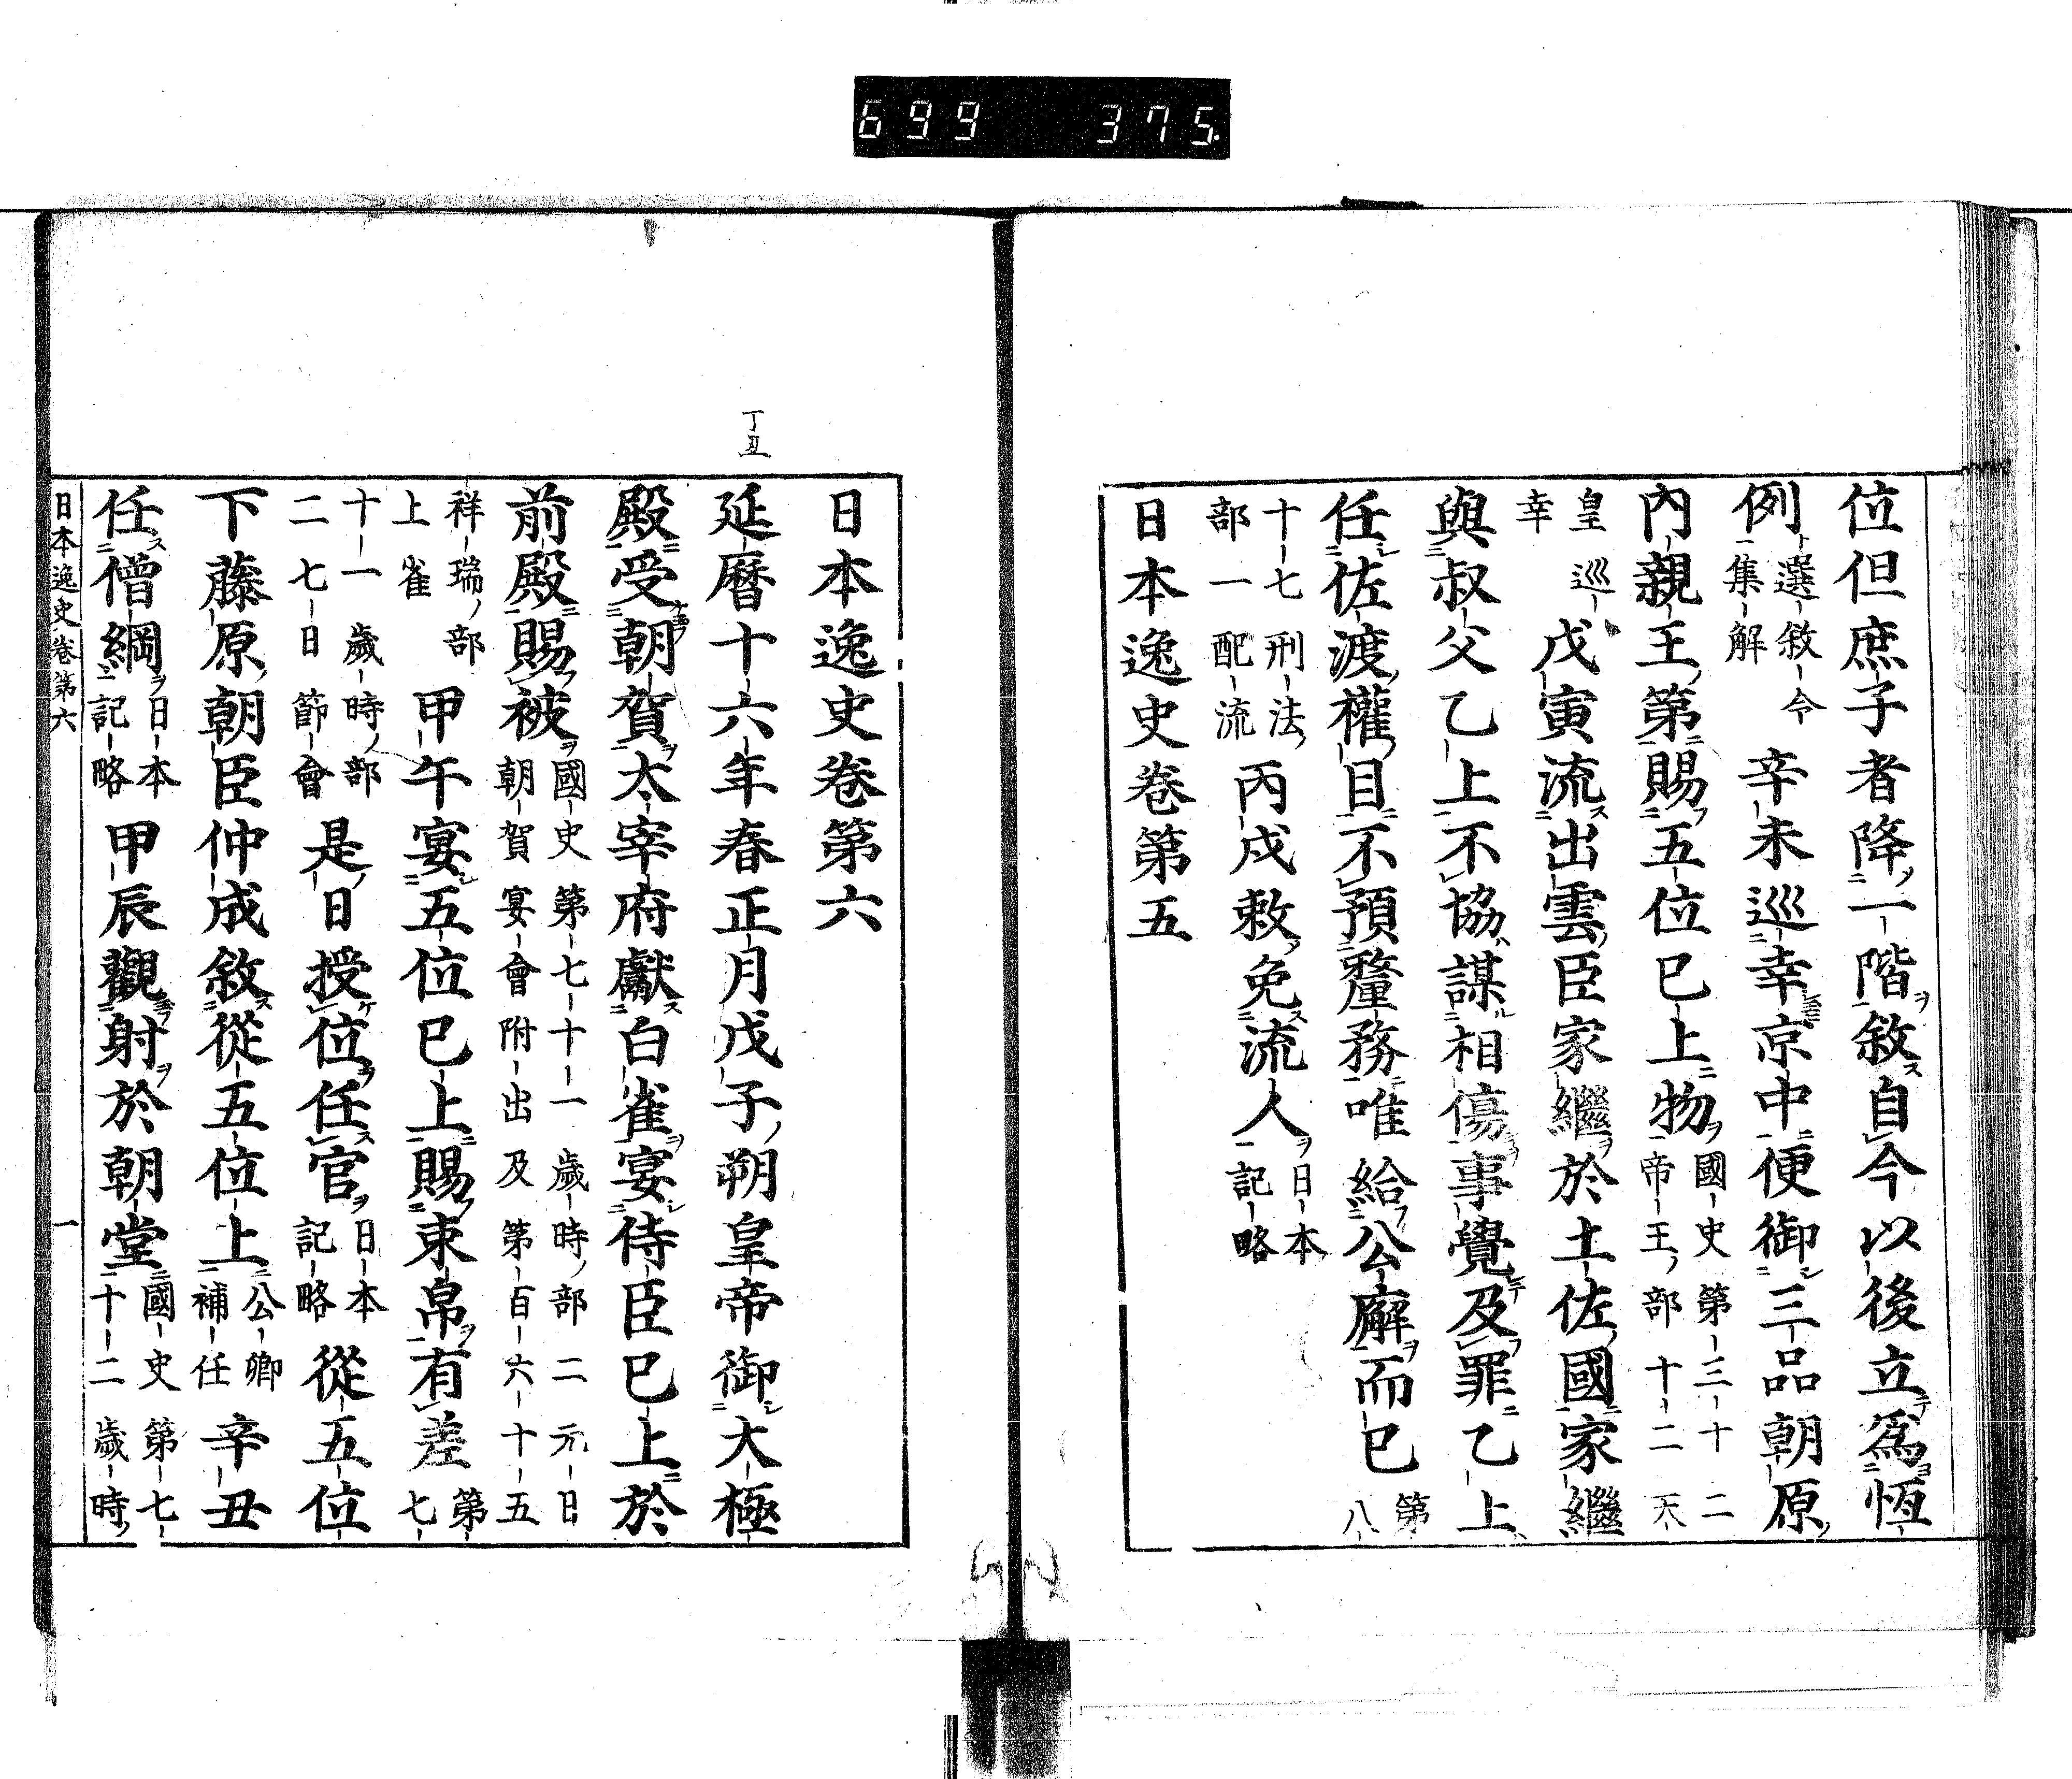 699 375
位但庶子者降一階敘自今以後立爲恆
例選敘令集解辛未巡幸京中便御三品朝原
內親王第賜五位已上物國史第三十二帝王部十二天
皇巡幸戊寅流出雲臣家繼於土佐國家繼
與叔父乙上不協謀相傷事覺及罪乙上
任佐渡權目不預釐務唯給公廨而已第八
十七刑法部一配流丙戌敕免流人日本記略
日本逸史卷第五
日本逸史卷第六
丁丑
延曆十六年春正月戊子朔皇帝御大極
殿受朝賀太宰府獻白雀宴侍臣已上於
前殿賜被國史第七十一歲時部二元日朝賀宴會附出及第百六十五
祥瑞部上雀甲午宴五位已上賜束帛有差第七
十一歲時部二七日節會是日授位任官日本記略從五位
下藤原朝臣仲成敘從五位上公卿補任辛丑
任僧綱日本記略甲辰觀射於朝堂國史第七十二歲時
日本逸史卷第六 一